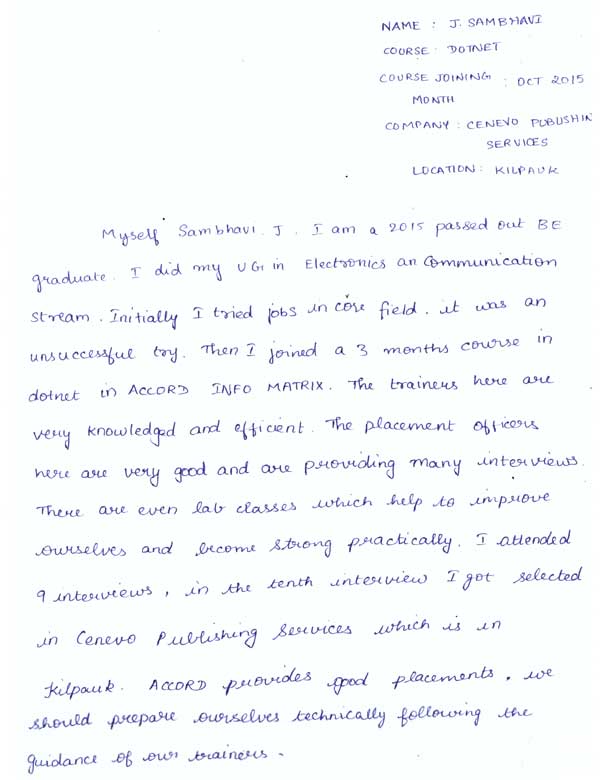 NAME : J. SAMBHAVI
COURSE : DOTNET
COURSE JOINING : OCT 2015
MONTH
COMPANY : CENEVO PUBLISHIN
SERVICES
LOCATION : KILPAUK
Myself Sambhavi. J. I am a 2015 passed out BE
graduate. I did my UG in Electronics an Communication
stream. Initially I tried jobs in core field. it was an
unsuccessful try. Then I joined a 3 months course in
dotnet in ACCORD INFO MATRIX. The trainers here are
very knowledged and efficient. The placement officers
here are very good and are providing many interviews.
There are even lab classes which help to improve
ourselves and become strong practically. I attended
9 interviews, in the tenth interview I got selected
in Cenevo Publishing Services which is in
Kilpauk. ACCORD provides good placements. we
should prepare ourselves technically following the
guidance of our trainers.